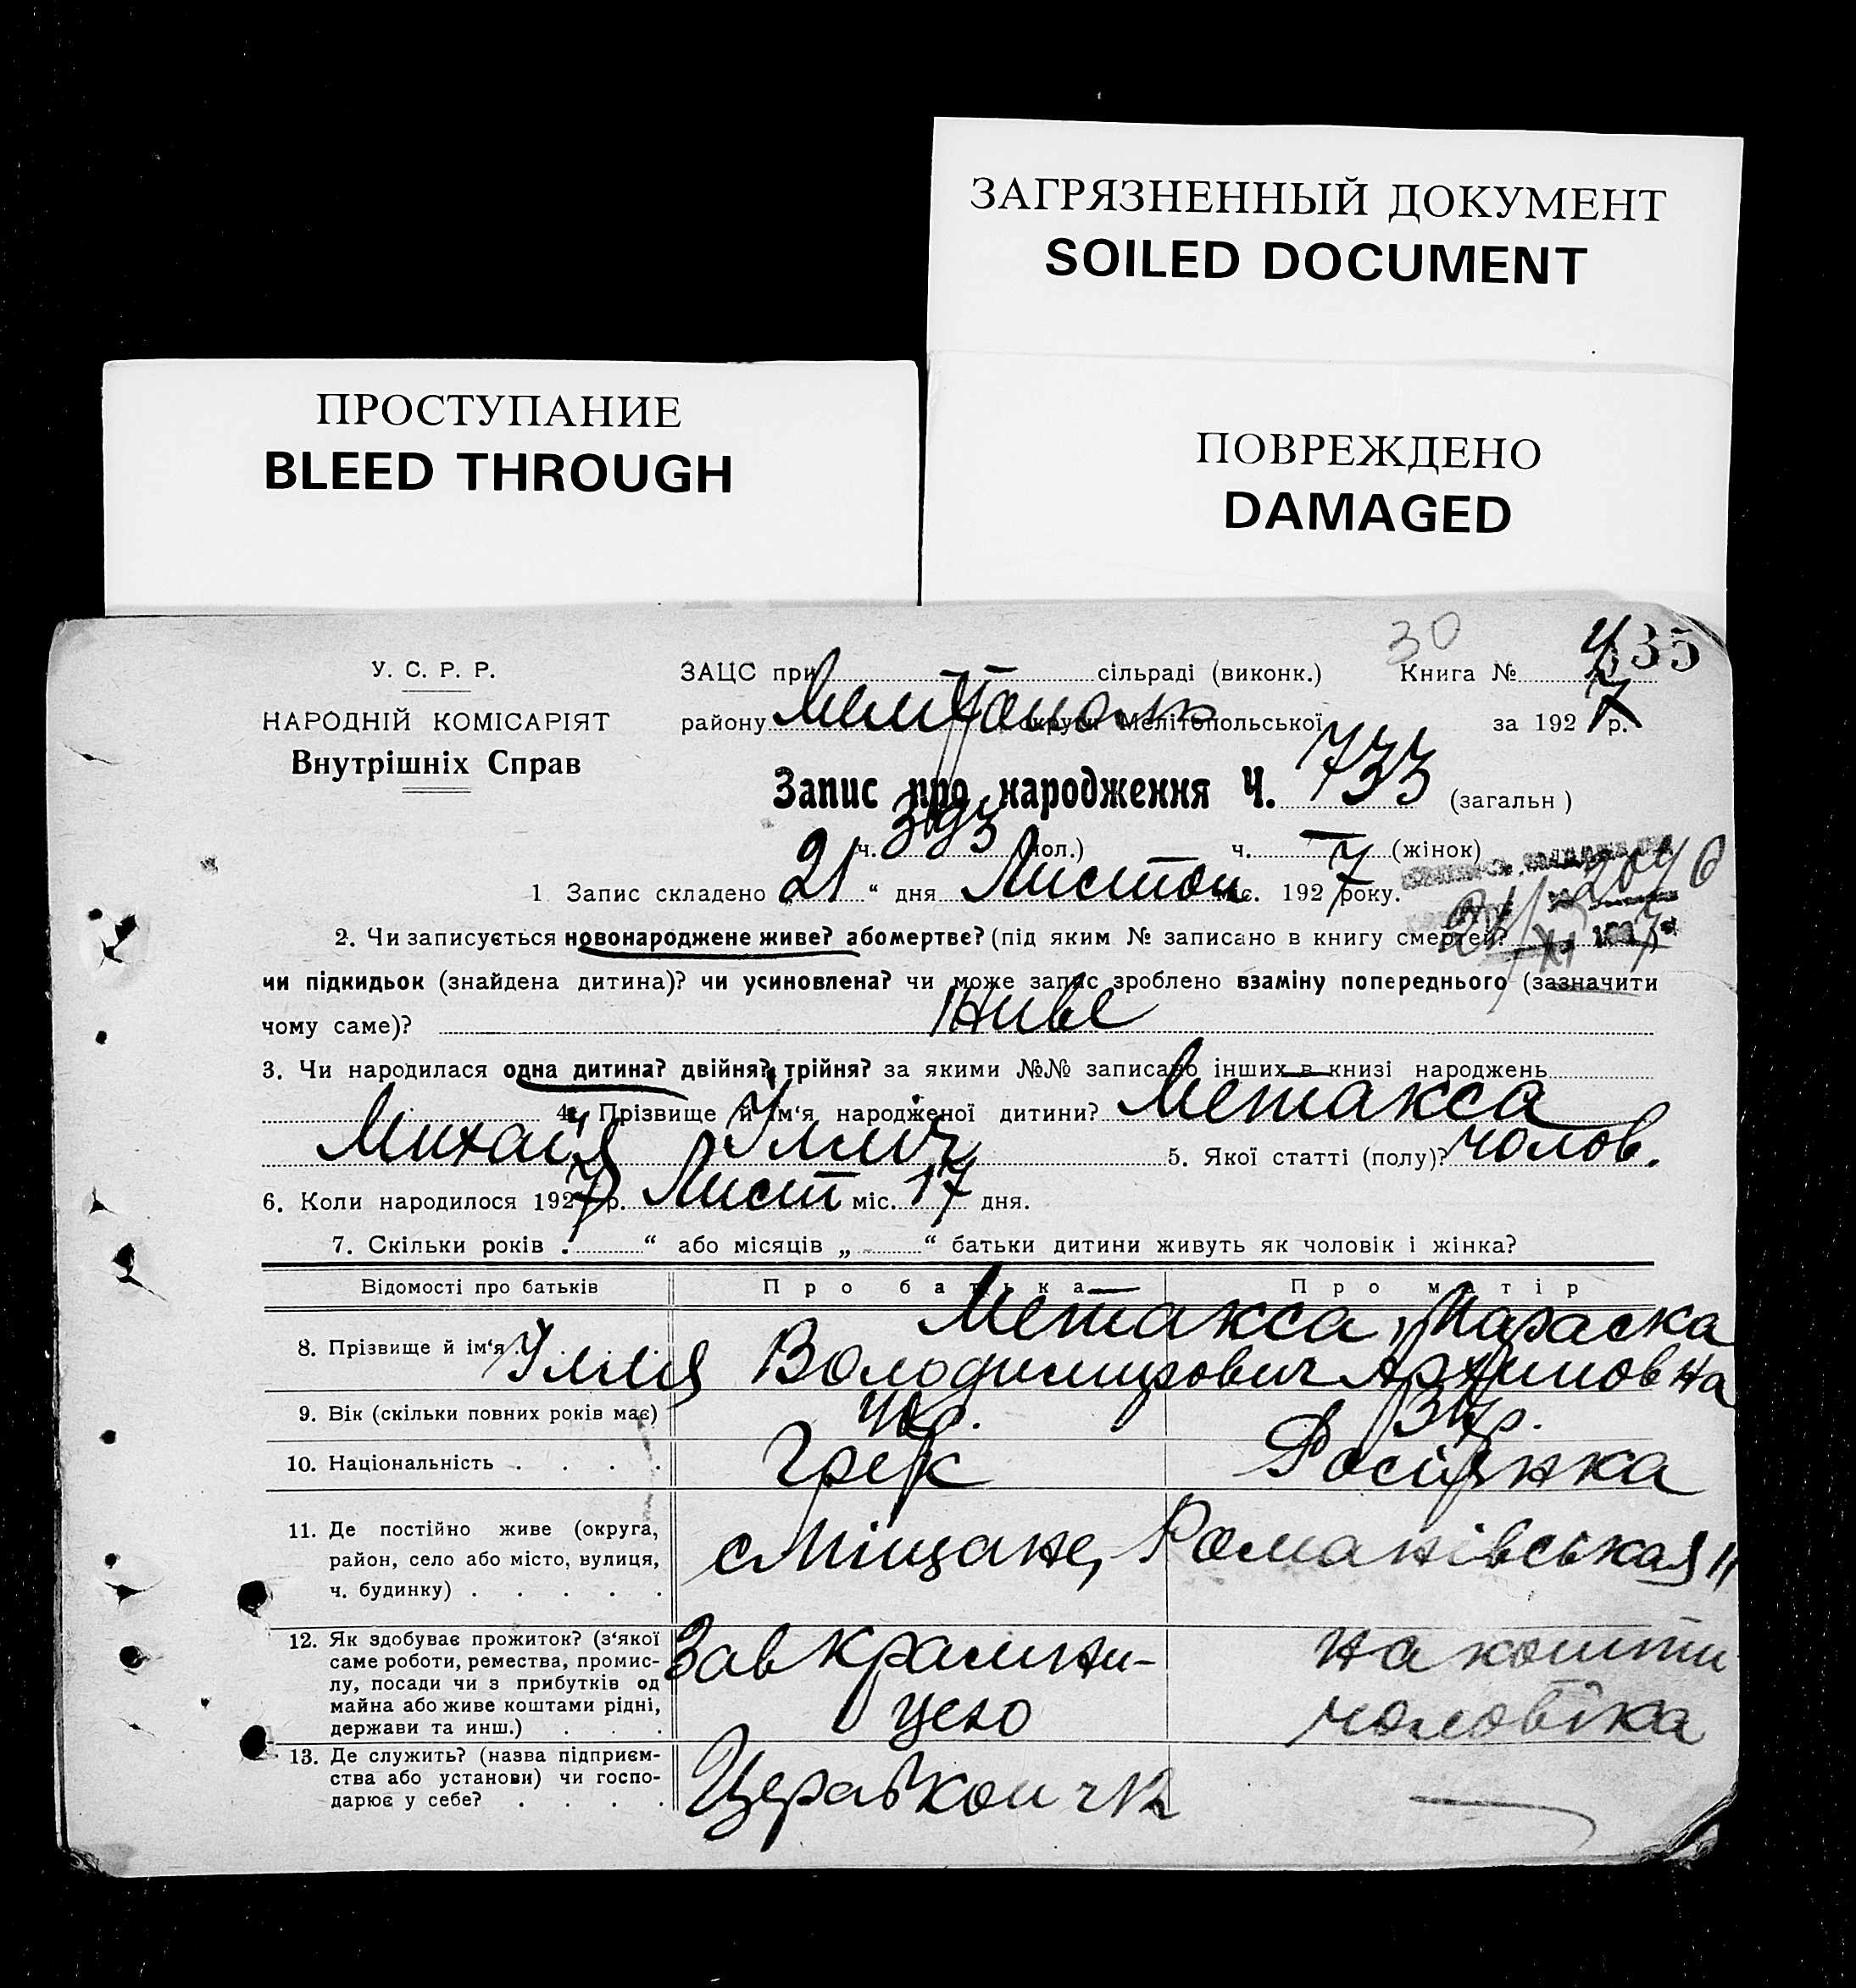 ЗАГРЯЗНЕННЫЙ ДОКУМЕНТ
SOILED DOCUMENT
ПРОСТУПАНИЕ
BLEED THROUGH
ПОВРЕЖДЕНО
DAMAGED
30
35
У. С. Р. Р.
НАРОДНІЙ КОМІСАРІЯТ
Внутрішніх Справ
ЗАЦС при сільраді (виконк.) Книга №
району Мелітополь округи Мелітопольської за 1927 р.
Запис про народження Ч. 733 (загальн)
ч. 393 (чол.) ч. — (жінок)
1 Запис складено „21“ дня Листоп міс. 1927 року.
2. Чи записується новонароджене живе? або мертве? (під яким № записано в книгу смертей?
чи підкидьок (знайдена дитина)? чи усиновлена? чи може запис зроблено взаміну попереднього (зазначити
чому саме)? Живе
3. Чи народилася одна дитина? двійня? трійня? за якими №№ записано інших в книзі народжень
4. Прізвище й ім‘я народженої дитини? Метакса
Михайл Ілліч 5. Якої статті (полу)? чолов.
6. Коли народилося 1927 р. Лист міс. 17 дня.
7. Скільки років „ “ або місяців „ “ батьки дитини живуть як чоловік і жінка?
Відомості про батьків Про батька Про матір
8. Прізвище й ім‘я Метакса, Параска
Ілля Володимирович Архиповна
9. Вік (скільки повних років має) 34 р.
10. Національність . . . . Грек Росіянка
11. Де постійно живе (округа,
район, село або місто, вулиця,
ч. будинку) . . . . .
с Міщане, Романівська 11
12. Як здобуває прожиток? (з‘якої
саме роботи, ремества, промис-
лу, посади чи з прибутків од
майна або живе коштами рідні,
держави та инш.) . . .
Зав крамни-
цею
на кошти
чоловіка
13. Де служить? (назва підприєм-
ства або установи) чи госпо-
дарює у себе? . . . .
Церабкоп 12